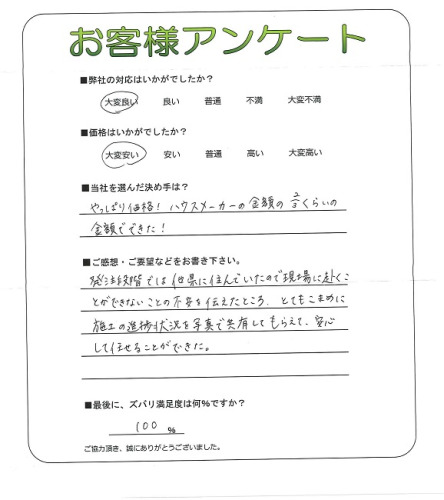 お客様アンケート
■弊社の対応はいかがでしたか?
大変良い 良い 普通 不満 大変不満
■価格はいかがでしたか?
大変安い 安い 普通 高い 大変高い
■当社を選んだ決め手は?
やっぱり価格! ハウスメーカーの金額の 2/3くらいの
金額でできた!
■ご感想・ご要望などをお書き下さい。
発注段階では他県に住んでいたので現場に赴くこ
とができないことの不安を伝えたところ、とてもこまめに
施工の進捗状況を写真で共有してもらえて、安心
して任せることができた。
■最後に、ズバリ満足度は何%ですか?
100 %
ご協力頂き、誠にありがとうございました。